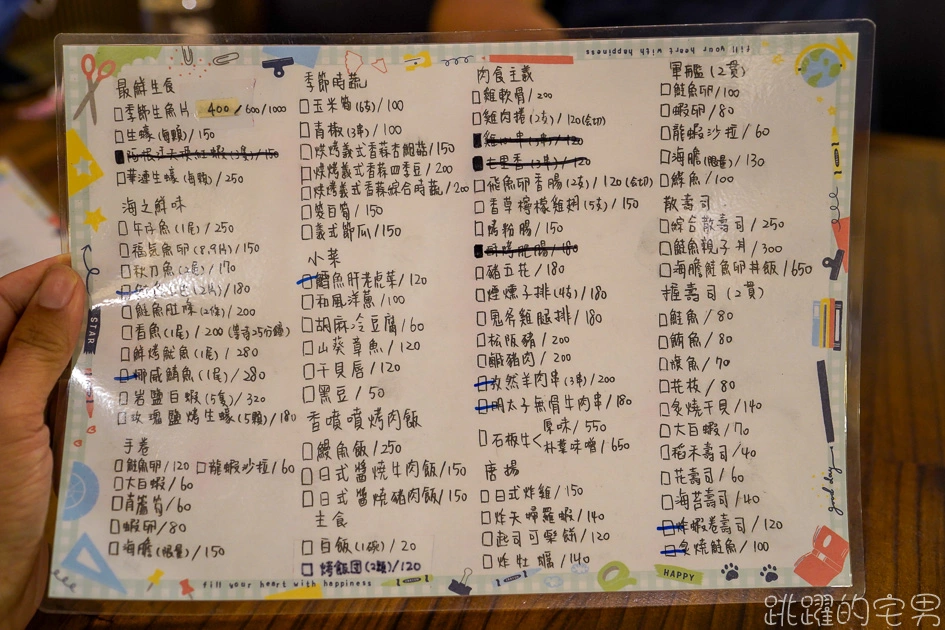 fill your heart with happiness
最鮮生食
季節生魚片 400/600/1000
生蠔(每顆)/150
華達生蠔(每顆)/250
海之鮮味
午仔魚(1尾)/250
福氣魚卵(8,9月)/150
秋刀魚(2尾)/170
鮭魚肚條(2條)/200
香魚(1尾)/200(等待25分鐘)
鮮烤魷魚(1尾)/280
挪威鯖魚(1尾)/280
岩鹽白蝦(5隻)/320
玫瑰鹽烤生蠔(5顆)/180
手卷
鮭魚卵/120 龍蝦沙拉/60
大白蝦/60
青蘆筍/60
蝦卵/80
海膽(限量)/150
季節時蔬
玉米筍(6支)/100
青椒(3串)/100
烘烤義式香蒜杏鮑菇/150
烘烤義式香蒜四季豆/200
烘烤義式香蒜綜合時蔬/200
筊白筍/150
義式節瓜/150
小菜
鱈魚肝老虎菜/120
和風洋蔥/100
胡麻冷豆腐/60
山葵章魚/120
干貝唇/120
黑豆/50
香噴噴烤肉飯
鰻魚飯/250
日式醬燒牛肉飯/150
日式醬燒豬肉飯/150
主食
白飯(1碗)/20
烤飯団(2顆)/120
肉食主義
雞軟骨/200
雞肉捲(2支)/120(会切)
雞心串(3串)/120
七里香(3串)/120
飛魚卵香腸(2支)/120(会切)
香草檸檬雞翅(5支)/150
鳴粉腸/150
豬五花/180
煙燻子排(4支)/180
鬼爷雞腿排/180
松阪豬/200
鹹豬肉/200
孜然羊肉串(3串)/200
明太子無骨牛肉串/180
石板牛<原味/550
朴葉味噌/650
唐揚
日式炸雞/150
炸天婦羅蝦/140
起司可樂餅/120
炸牡蠣/140
軍艦(2貫)
鮭魚卵/100
蝦卵/80
龍蝦沙拉/60
海膽(限量)/130
鮢魚/100
散壽司
綜合散壽司/250
鮭魚親子丼/300
海膽鮭魚卵丼飯/650
握壽司(2貫)
鮭魚/80
鮪魚/80
旗魚/70
花枝/80
炙燒干貝/140
大白蝦/70
稻禾壽司/40
花壽司/60
海苔壽司/40
炸蝦卷壽司/120
炙燒鮭魚/100
STAR
good day
HAPPY
fill your heart with happiness
跳躍的宅男